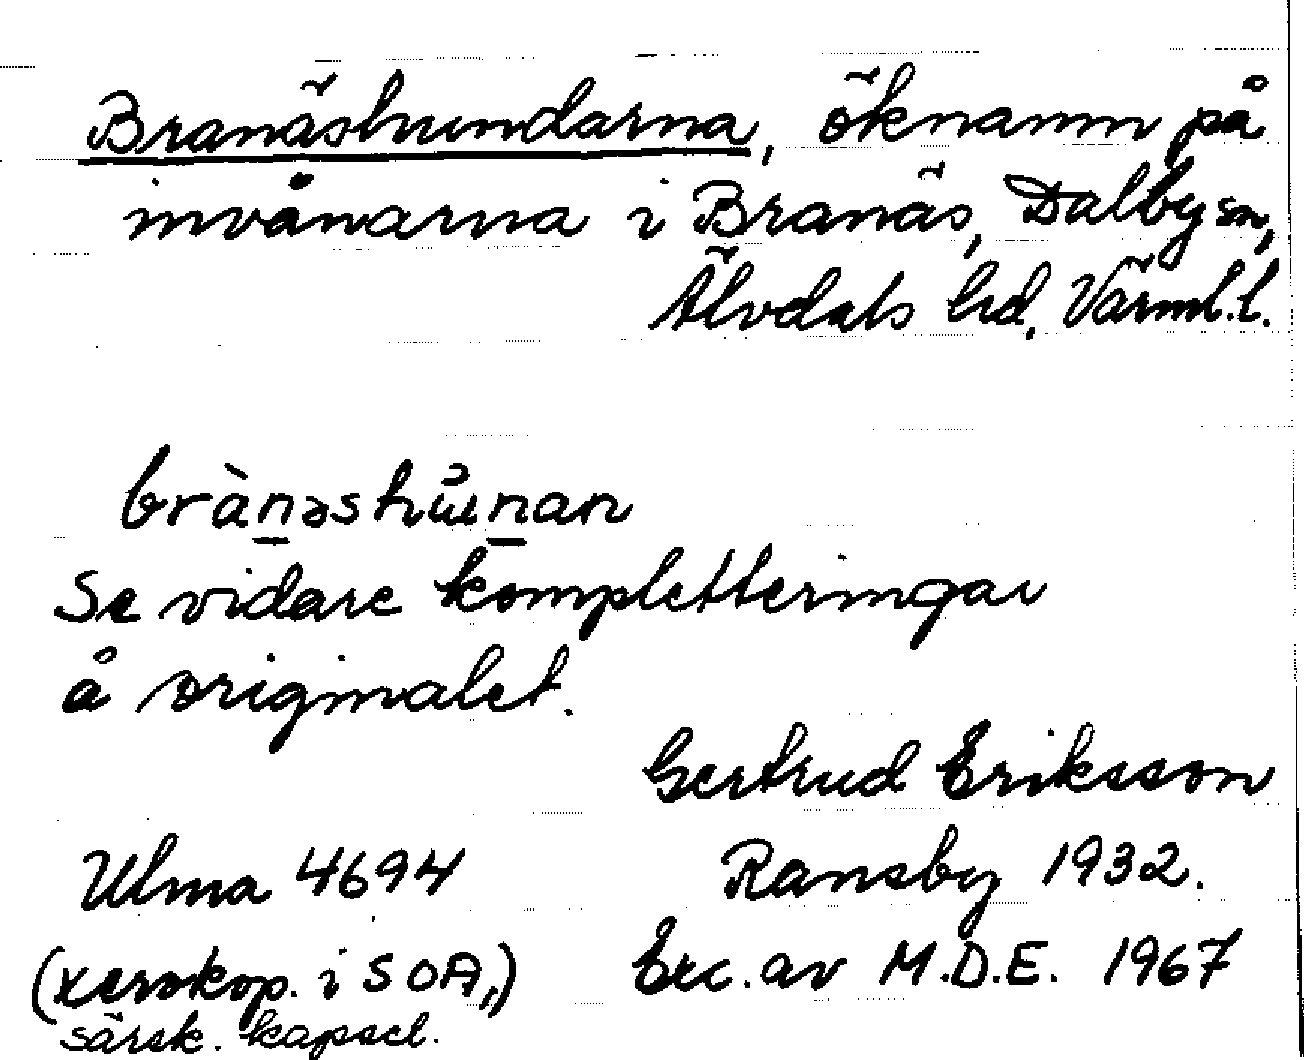 Branäshundarna, öknamn på
invånarna i Branäs, Dalby sn,
Älvdals hd, Värml. l.
brànəshu̇nan
Se vidare kompletteringar
å originalet.
Gertrud Eriksson
Ulma 4694 Ransby 1932.
(xerokop. i SOA,,) Exc. av M.D.E. 1967
särsk. kapsel.